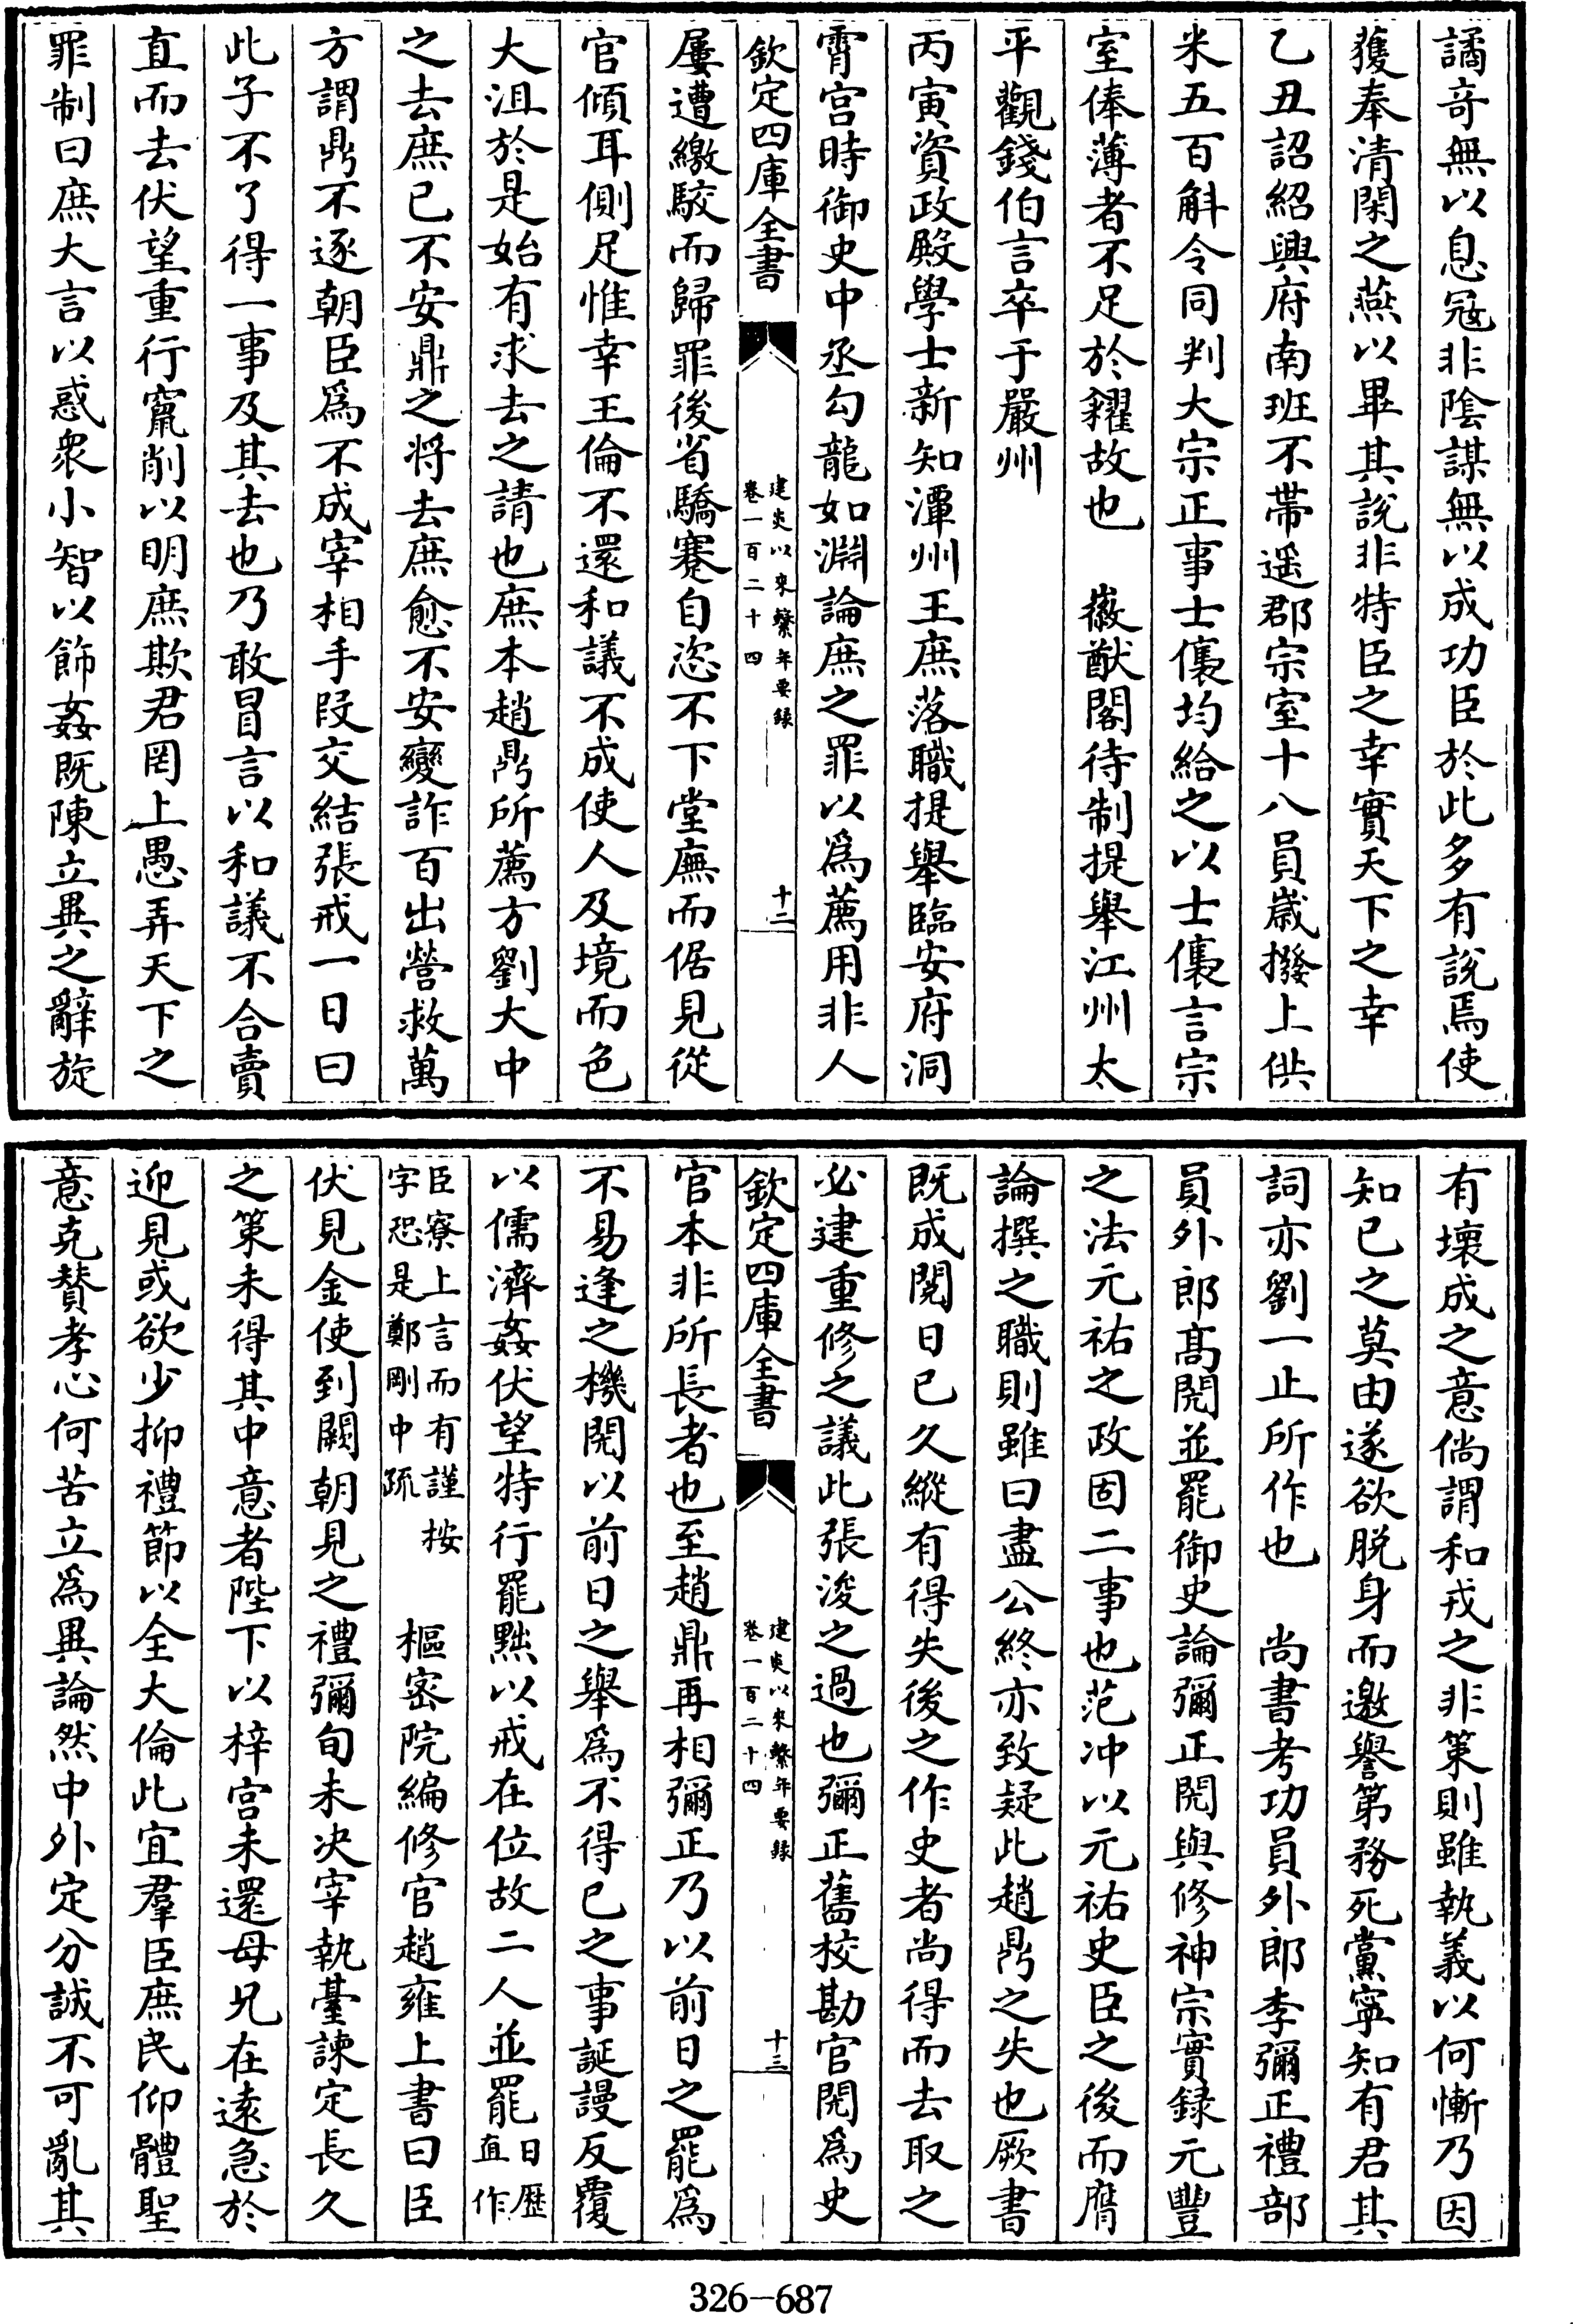 譎竒無以息冦非陰謀無以成功臣於此多有說焉使
獲奉清閑之燕以畢其說非特臣之幸實天下之幸
乙丑詔紹興府南班不帶遥郡宗室十八員歳撥上供
米五百斛令同判大宗正事士㒟均給之以士㒟言宗
室俸薄者不足於糴故也　徽猷閣待制提舉江州太
平觀錢伯言卒于嚴州
丙寅資政殿學士新知潭州王庶落職提舉臨安府洞
霄宫時御史中丞勾龍如淵論庶之罪以爲薦用非人
欽定四庫全書
建炎以來繫年要録
卷一百二十四
十二
屢遭繳駮而歸罪後省驕蹇自恣不下堂廡而倨見從
官傾耳側足惟幸王倫不還和議不成使人及境而色
大沮於是始有求去之請也庶本趙鼎所薦方劉大中
之去庶已不安鼎之将去庶愈不安變詐百出營救萬
方謂鼎不逐朝臣爲不成宰相手段交結張戒一日曰
此子不了得一事及其去也乃敢冒言以和議不合賣
直而去伏望重行竄削以明庶欺君罔上愚弄天下之
罪制曰庶大言以惑衆小智以飾姦既陳立異之辭旋
有壊成之意倘謂和戎之非策則雖執義以何慚乃因
知已之莫由遂欲脱身而邀譽第務死黨寜知有君其
詞亦劉一止所作也　尚書考功員外郎李彌正禮部
員外郎髙閌並罷御史論彌正閌與修神宗實録元豐
之法元祐之政固二事也范冲以元祐史臣之後而膺
論撰之職則雖曰盡公終亦致疑此趙鼎之失也厥書
既成閲日已久縱有得失後之作史者尚得而去取之
必建重修之議此張浚之過也彌正舊校勘官閌爲史
欽定四庫全書
建炎以來繫年要録
卷一百二十四
十三
官本非所長者也至趙鼎再相彌正乃以前日之罷爲
不易逢之機閌以前日之舉爲不得已之事誕謾反覆
以儒濟姦伏望特行罷黜以戒在位故二人並罷日歴
直作
臣寮上言而有謹按
字恐是鄭剛中疏　樞密院編修官趙雍上書曰臣
伏見金使到闕朝見之禮彌旬未决宰執臺諫定長久
之策未得其中意者陛下以梓宫未還母兄在逺急於
迎見或欲少抑禮節以全大倫此宜羣臣庶民仰體聖
意克賛孝心何苦立爲異論然中外定分誠不可亂其
326-687